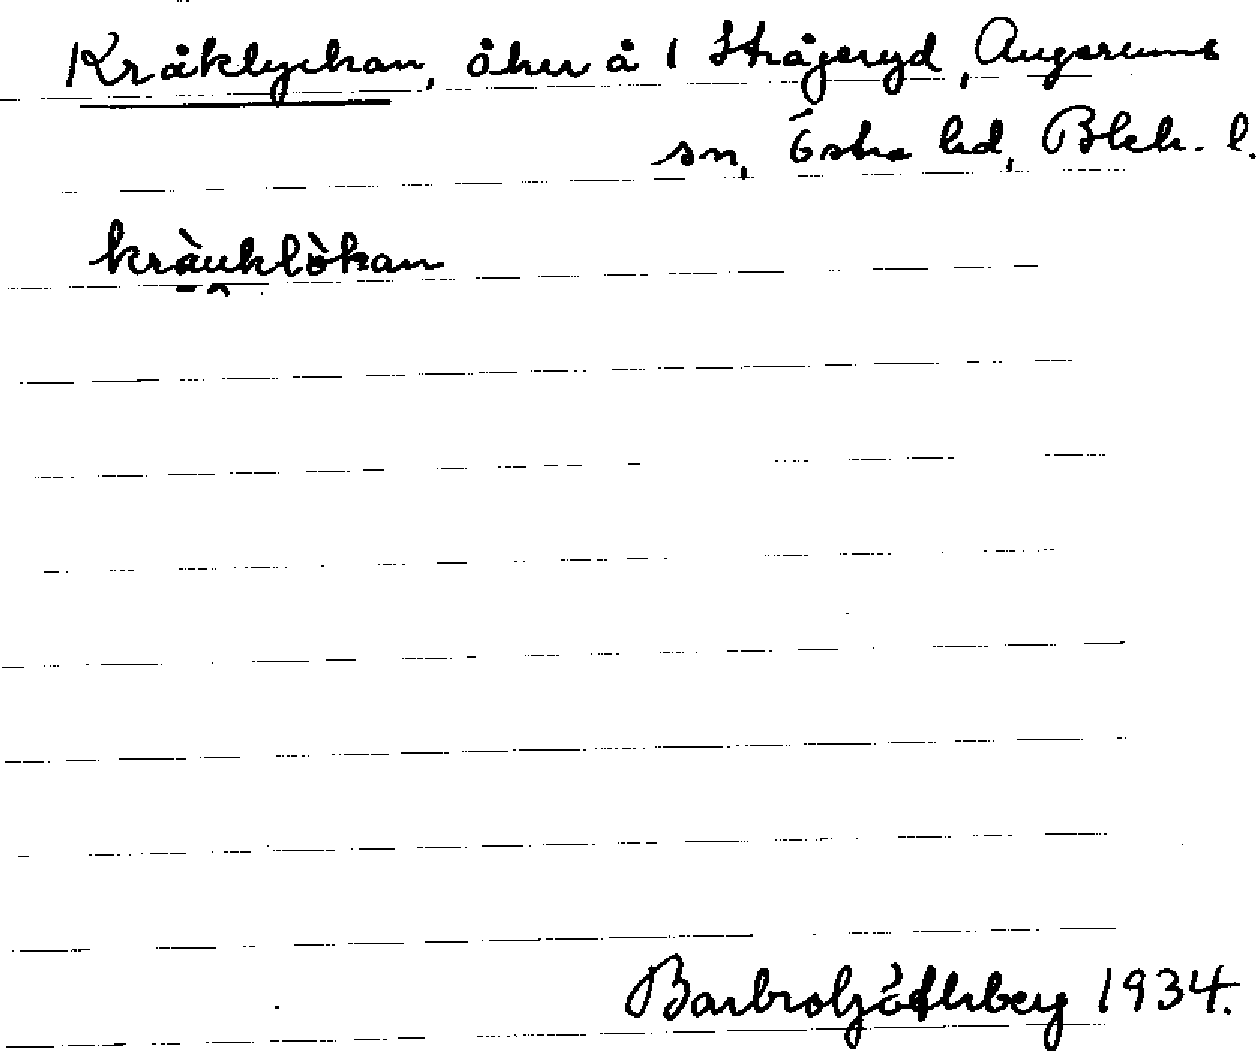 Kråklyckan, åker å 1 Stråjeryd, Augerums
sn, Östra hd, Blek. l.
kràuklòkan
Barbro 1934.